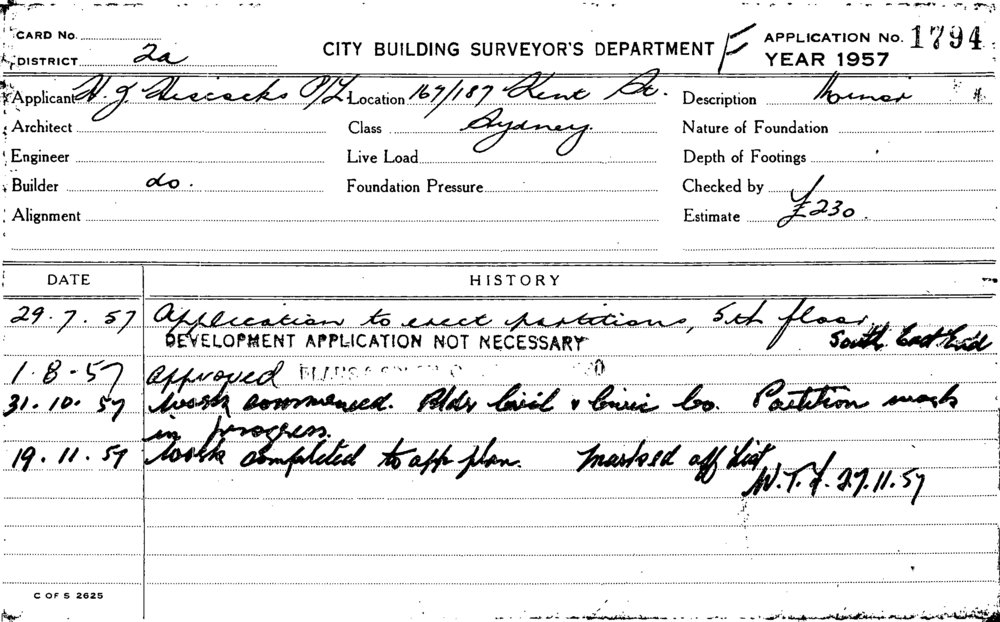 CARD No.
DISTRICT 2a
CITY BUILDING SURVEYOR'S DEPARTMENT F
APPLICATION No. 1794
YEAR 1957
Applicant H. J. Hiscocks P/L. Location 167/187 Kent St. Description Minor
Architect Class Sydney. Nature of Foundation
Engineer Live Load Depth of Footings
Builder do. Foundation Pressure Checked by
Alignment Estimate £230.
DATE HISTORY
29.7.57 Application to erect partitions, 5th floor
DEVELOPMENT APPLICATION NOT NECESSARY South East End
1-8-57 Approved PLANS
31.10.57 Work commenced. Bldr Civil & Civic Co. Partition work
in progress.
19.11.57 Work completed to app plan. Marked off list
27.11.57
C OF S 2625